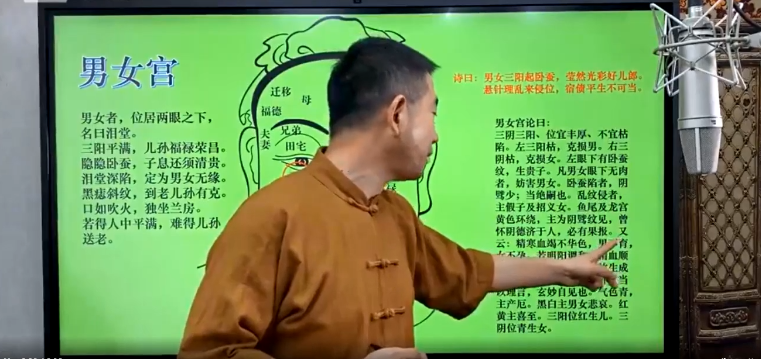 男女宫
男女者，位居两眼之下，
名曰泪堂。
三阳平满，儿孙福禄荣昌。
隐隐卧蚕，子息还须清贵。
泪堂深陷，定为男女无缘。
黑痣斜纹，到老儿孙有克。
口如吹火，独坐兰房。
若得人中平满，难得儿孙
送老。
迁移
母
福德
夫
妻
兄弟
田宅
诗曰：男女三阳起卧蚕，莹然光彩好儿郎。
悬针理乱来侵位，宿债平生不可当。
男女宫论曰：
三阴三阳、位宜丰厚、不宜枯
陷。左三阳枯，克损男。右三
阴枯，克损女。左眼下有卧蚕
纹，生贵子。凡男女眼下无肉
者，妨害男女。卧蚕陷者，阴
骘少；当绝嗣也。乱纹侵者，
主假子及招义女。鱼尾及龙宫
黄色环绕，主为阴骘纹见，曾
怀阴德济于人，必有果报。又
云：精寒血竭不华色，男
育，
血顺
生成
当
玄妙自见也。气色青，
主产厄。黑白主男女悲哀。红
黄主喜至。三阳位红生儿。三
阴位青生女。